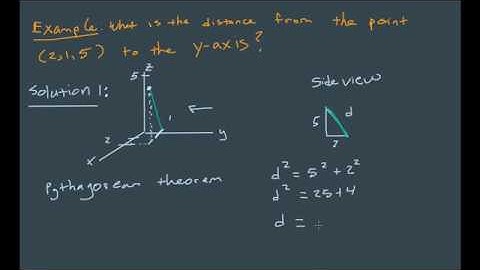 Example. What is the distance from the point
(2,1,5) to the y-axis?
Solution 1:
z
5
1
y
2
x
Side view
5
d
2
Pythagorean theorem
d² = 5² + 2²
d² = 25+4
d =